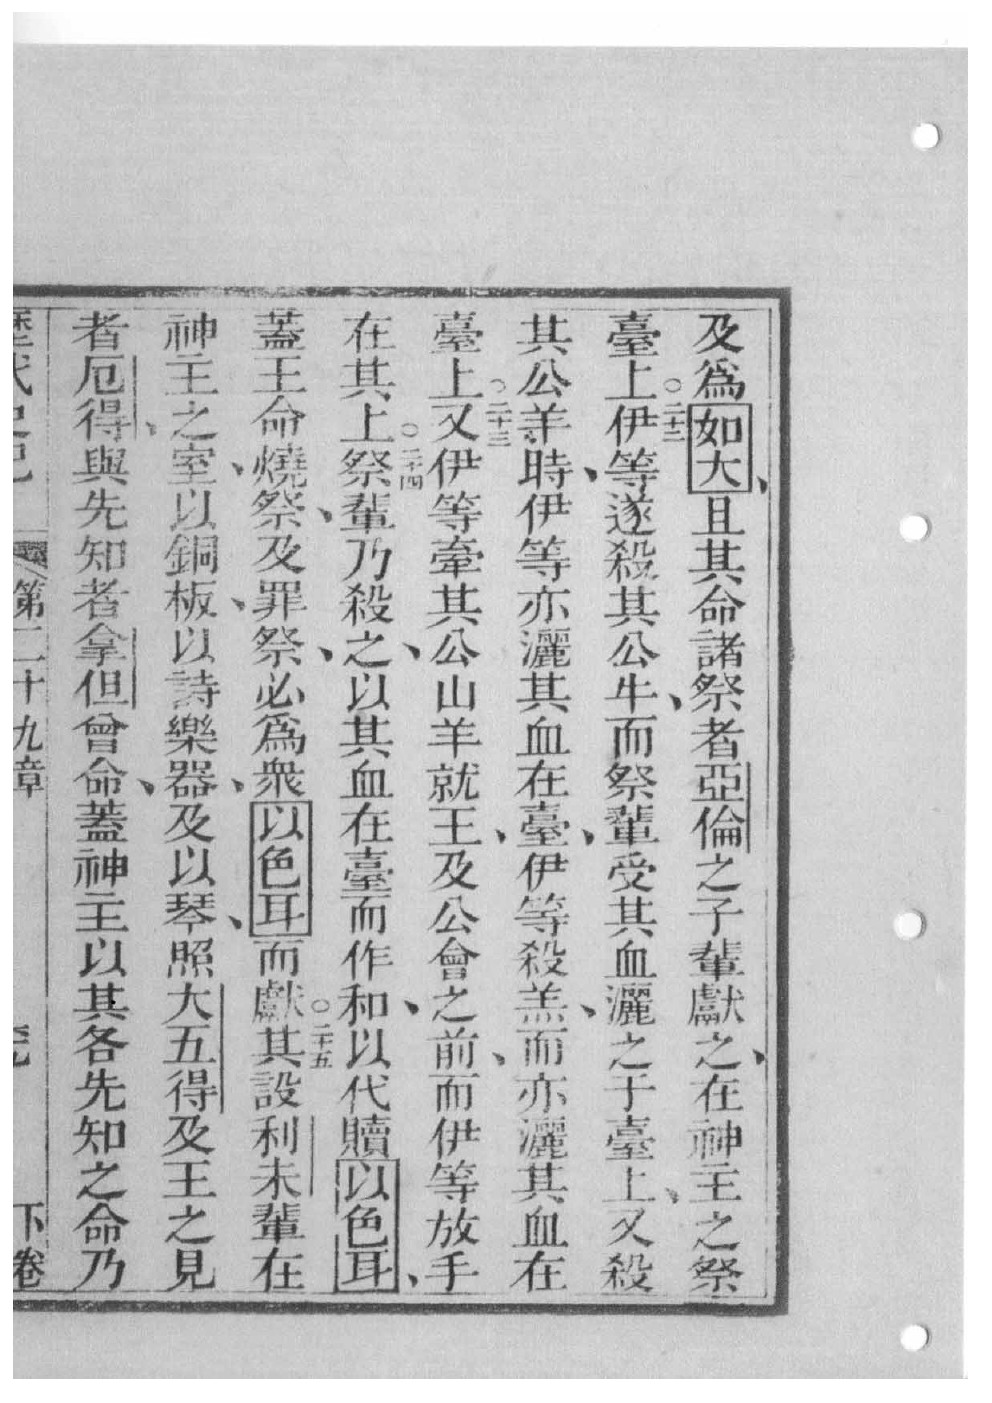 及爲如大、且其命諸祭者亞倫之子輩獻之、在神主之祭
臺上○二十二伊等遂殺其公牛、而祭輩受其血灑之于臺上、又殺
其公羊時、伊等亦灑其血在臺、伊等殺羔、而亦灑其血在
臺上○二十三又伊等牽其公山羊就王、及公會之前、而伊等放手
在其上○二十四祭輩乃殺之、以其血在臺而作和、以代贖以色耳、
蓋王命燒祭、及罪祭、必爲衆以色耳而獻○二十五其設利未輩在
神主之室、以銅板、以詩樂器、及以琴、照大五得及王之見
者厄得、與先知者拿但曾命、蓋神主以其各先知之命乃
歷代史記 第二十九章 下卷